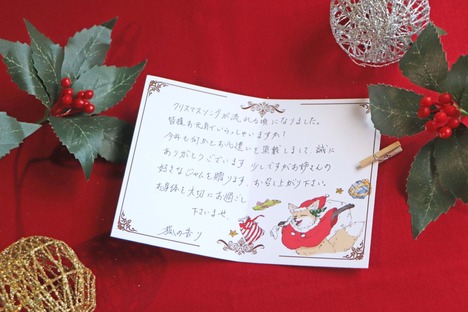 クリスマスソングが流れる頃になりました。
皆様お元気でいらっしゃいますか？
今年も何かとお心遣いを頂戴しまして、誠に
ありがとうございます 少しですがお姉さんの
好きなジャムを贈ります、お召し上がり下さい。
お身体を大切にお過ごし
下さいませ。
風の香り